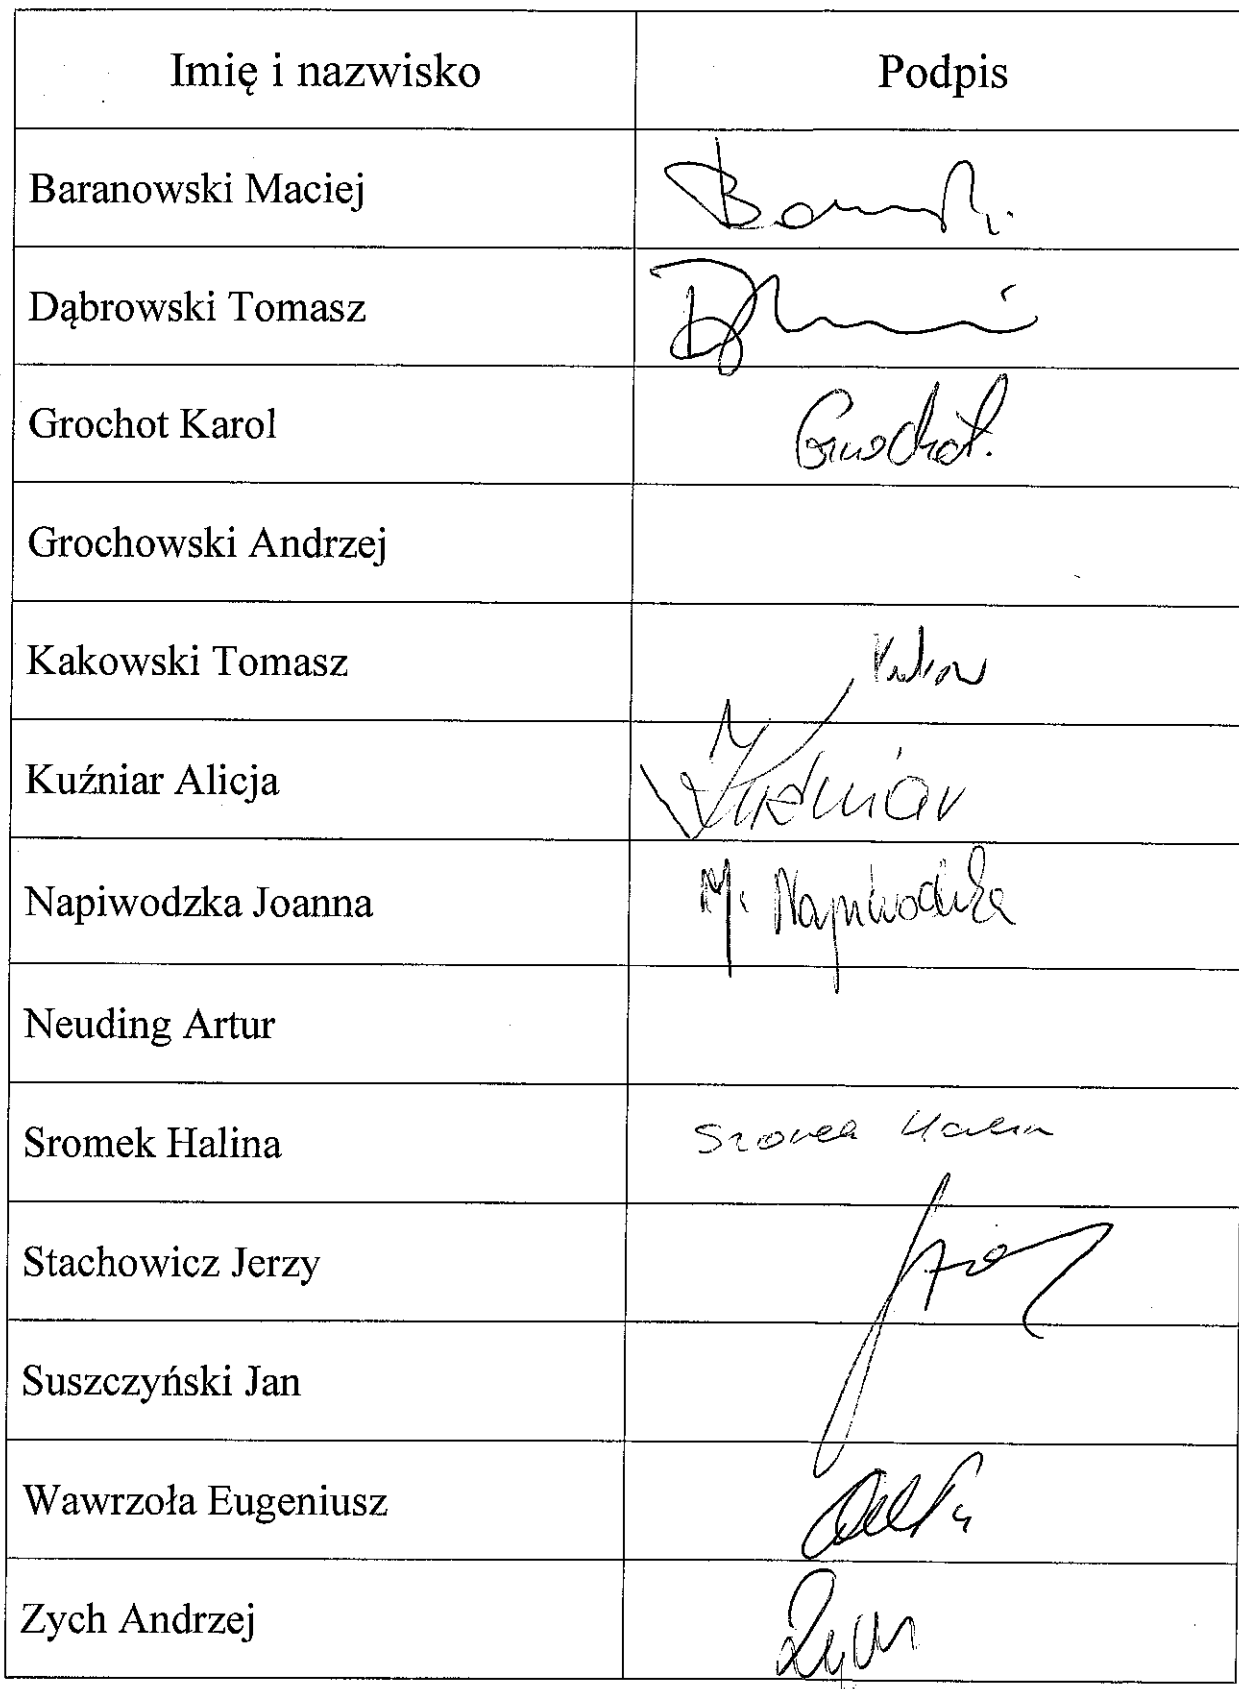 Imię i nazwisko Podpis
Baranowski Maciej
Dąbrowski Tomasz
Grochot Karol Grochot.
Grochowski Andrzej
Kakowski Tomasz
Kuźniar Alicja Kuźniar
Napiwodzka Joanna M. Napiwodzka
Neuding Artur
Sromek Halina Sromek Halina
Stachowicz Jerzy
Suszczyński Jan
Wawrzoła Eugeniusz
Zych Andrzej Zych